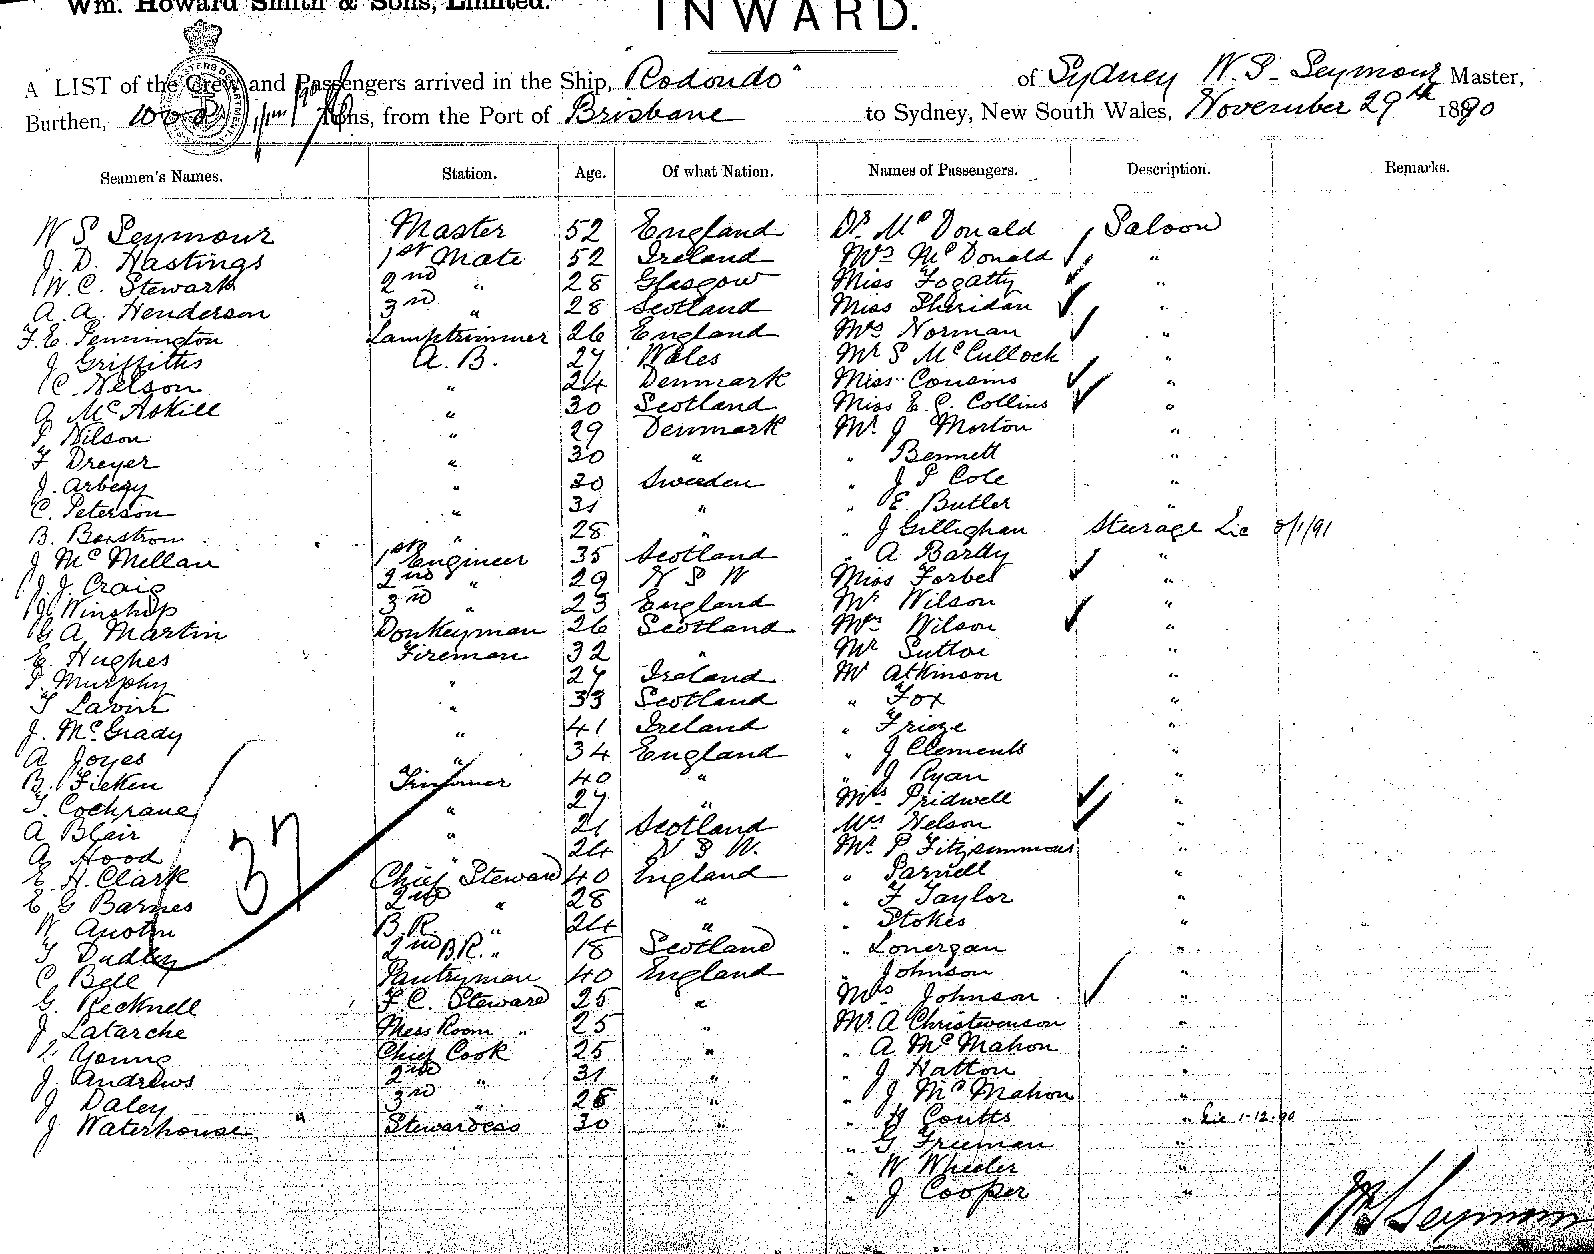 Wm. Howard Smith & Sons, Limited.
INWARD.
A LIST of the Crew and Passengers arrived in the Ship, "Rodondo" of Sydney W. S. Seymour Master,
Burthen, Tons, from the Port of Brisbane to Sydney, New South Wales, November 29th 1890
Seamen's Names. Station. Age. Of what Nation. Names of Passengers. Description. Remarks.
W S Seymour Master 52 England Dr. McDonald Saloon
J. D. Hastings 1st Mate 52 Ireland Mrs McDonald "
W. C. Stewart 2nd " 28 Glasgow Miss Fogatty "
A. A. Henderson 3rd " 28 Scotland Miss Sheridan "
F. E. Pennington Lamptrimmer 26 England Mrs Norman "
J Griffiths A. B. 27 Wales Mr S McCullock "
C. Nelson " 24 Denmark Miss Cousins "
A McAskill " 30 Scotland Miss E. C. Collins "
P Nilson " 29 Denmark Mr. J Morton "
F Dreyer " 30 " " Bennett "
J. Arbegy " 30 Sweden " J P Cole "
C. Peterson " 31 " " E. Butler "
B. Bonstrom " 28 " " J Gillighan Sturage Lie 8/1/91
J McMellan 1st Engineer 35 Scotland " A Bardy "
J. J. Craig 2nd " 29 N S W Miss Forbes "
J Winship 3rd " 23 England Mr Wilson "
G A Martin Donkeyman 26 Scotland Mrs Wilson "
E. Hughes Fireman 32 " Mr Sutton "
P. Murphy " 27 Ireland Mr Atkinson "
T Lavin " 33 Scotland " Fox "
J. McGrady " 41 Ireland " Frioze "
A Joyes " 34 England " J Clements "
B. Ficken Trimmer 40 " " J Ryan "
T. Cochrane " 27 " Mrs Pridwell "
A Blair " 21 Scotland Mrs Nelson "
A Hood " 24 N S W. Mr P Fitzsimmons "
E. H. Clark Chief Steward 40 England " Parnell "
E G Barnes 2nd " 28 " " F Taylor "
W Austin B. R. " 24 " " Stokes "
T Dudley 2nd B.R. " 18 Scotland " Lonergan "
C. Bell Pantryman 40 England " Johnson "
G. Recknell F. C. Steward 25 " Mrs Johnson "
J Latarche Mess Room " 25 " Mr. A Christwenson "
L. Young Chief Cook 25 " " A McMahon "
J Andrews 2nd " 31 " " J Hatton "
J Daley 3rd " 28 " " J McMahon "
J Waterhouse " Stewardess 30 " " H Coutts " Lie 1-12-90
" G Freeman "
" W Wheeler "
" J Cooper "
37
W S Seymour